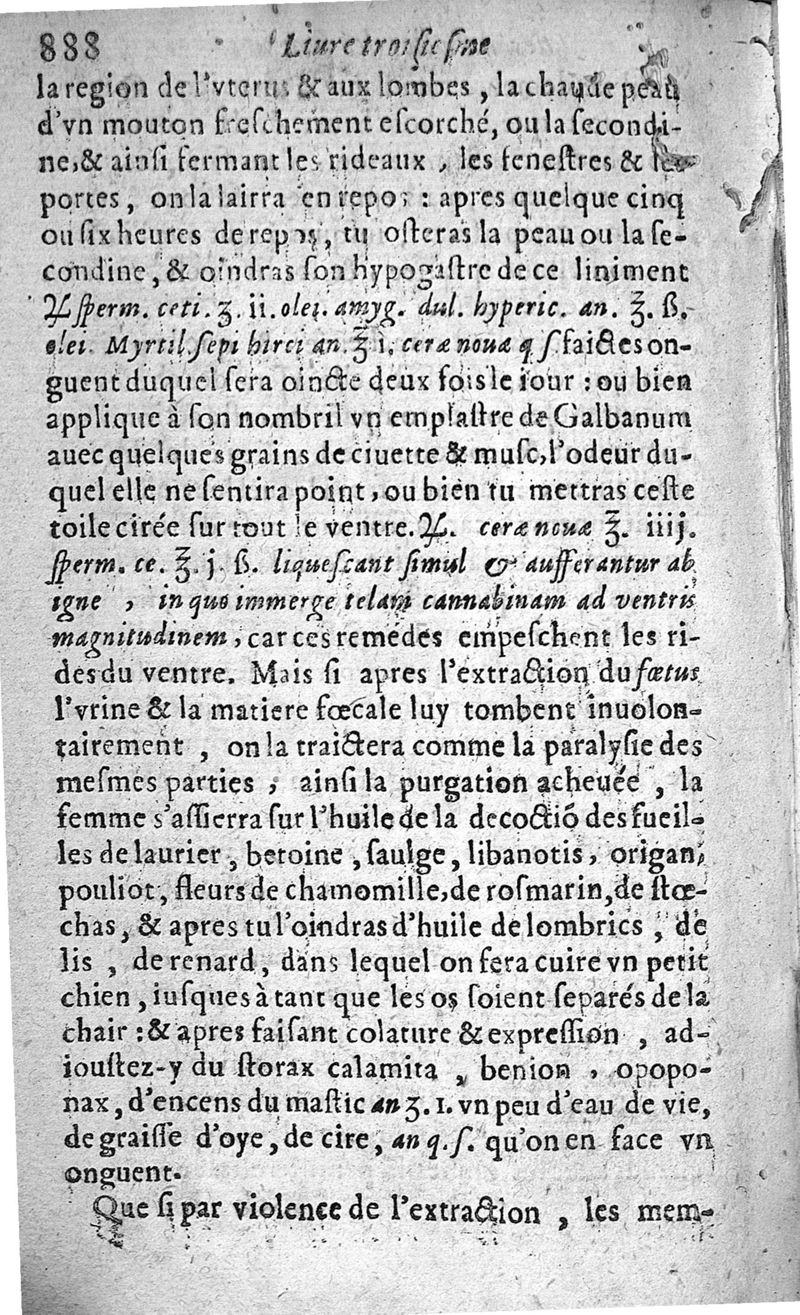 888 Liure troisiesme
la region de l'vterus & aux lombes, la chaude peau
d'vn mouton freschement escorché, ou la secondi-
ne, & ainsi fermant les rideaux, les fenestres & les
portes, on la lairra en repos : apres quelque cinq
ou six heures de repos, tu osteras la peau ou la se-
condine, & oindras son hypogastre de ce liniment
℞ sperm. ceti. ʒ. ii. olei. amyg. dul. hyperic. an. ℥. ß.
olei Myrtil. sepi hirci an. ℥ i. ceræ nouæ q s. faictes on-
guent duquel sera oincte deux fois le iour : ou bien
applique à son nombril vn emplastre de Galbanum
auec quelques grains de ciuette & musc, l'odeur du-
quel elle ne sentira point, ou bien tu mettras ceste
toile cirée sur tout le ventre. ℞. ceræ nouæ ℥. iiij.
sperm. ce. ℥. j. ß. liquescant simul & aufferantur ab
igne, in quo immerge telam cannabinam ad ventris
magnitudinem, car ces remedes empeschent les ri-
des du ventre. Mais si apres l'extraction du fœtus
l'vrine & la matiere fœcale luy tombent inuolon-
tairement, on la traictera comme la paralysie des
mesmes parties, ainsi la purgation acheuée, la
femme s'assierra sur l'huile de la decoctiõ des fueil-
les de laurier, betoine, saulge, libanotis, origan,
pouliot, fleurs de chamomille, de rosmarin, de stœ-
chas, & apres tu l'oindras d'huile de lombrics, de
lis, de renard, dans lequel on fera cuire vn petit
chien, iusques à tant que les os soient separés de la
chair : & apres faisant colature & expression, ad-
ioustez-y du storax calamita, benion, opopo-
nax, d'encens du mastic an ʒ. 1. vn peu d'eau de vie,
de graisse d'oye, de cire, an q. s. qu'on en face vn
onguent.
Que si par violence de l'extraction, les mem-